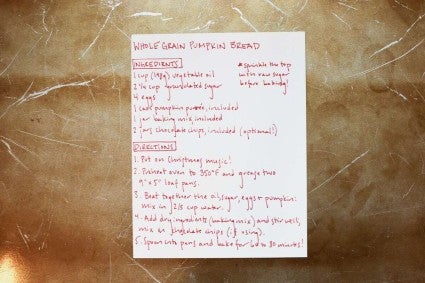 WHOLE GRAIN PUMPKIN BREAD
INGREDIENTS
1 cup (198g) vegetable oil
2 cup granulated sugar
4 eggs
1 can pumpkin purée, included
1 jar baking mix, included
2 jars chocolate chips, included (optional!)
* sprinkle the top
with raw sugar
before baking!
DIRECTIONS
1. Put on Christmas music!
2. Preheat oven to 350°F and grease two
9"x5" loaf pans.
3. Beat together the oil, sugar, eggs + pumpkin.
mix in 2/3 cup water.
4. Add dry ingredients (baking mix) and stir well,
mix in chocolate chips (if using).
5. Spoon into pans and bake for 60 to 80 minutes!